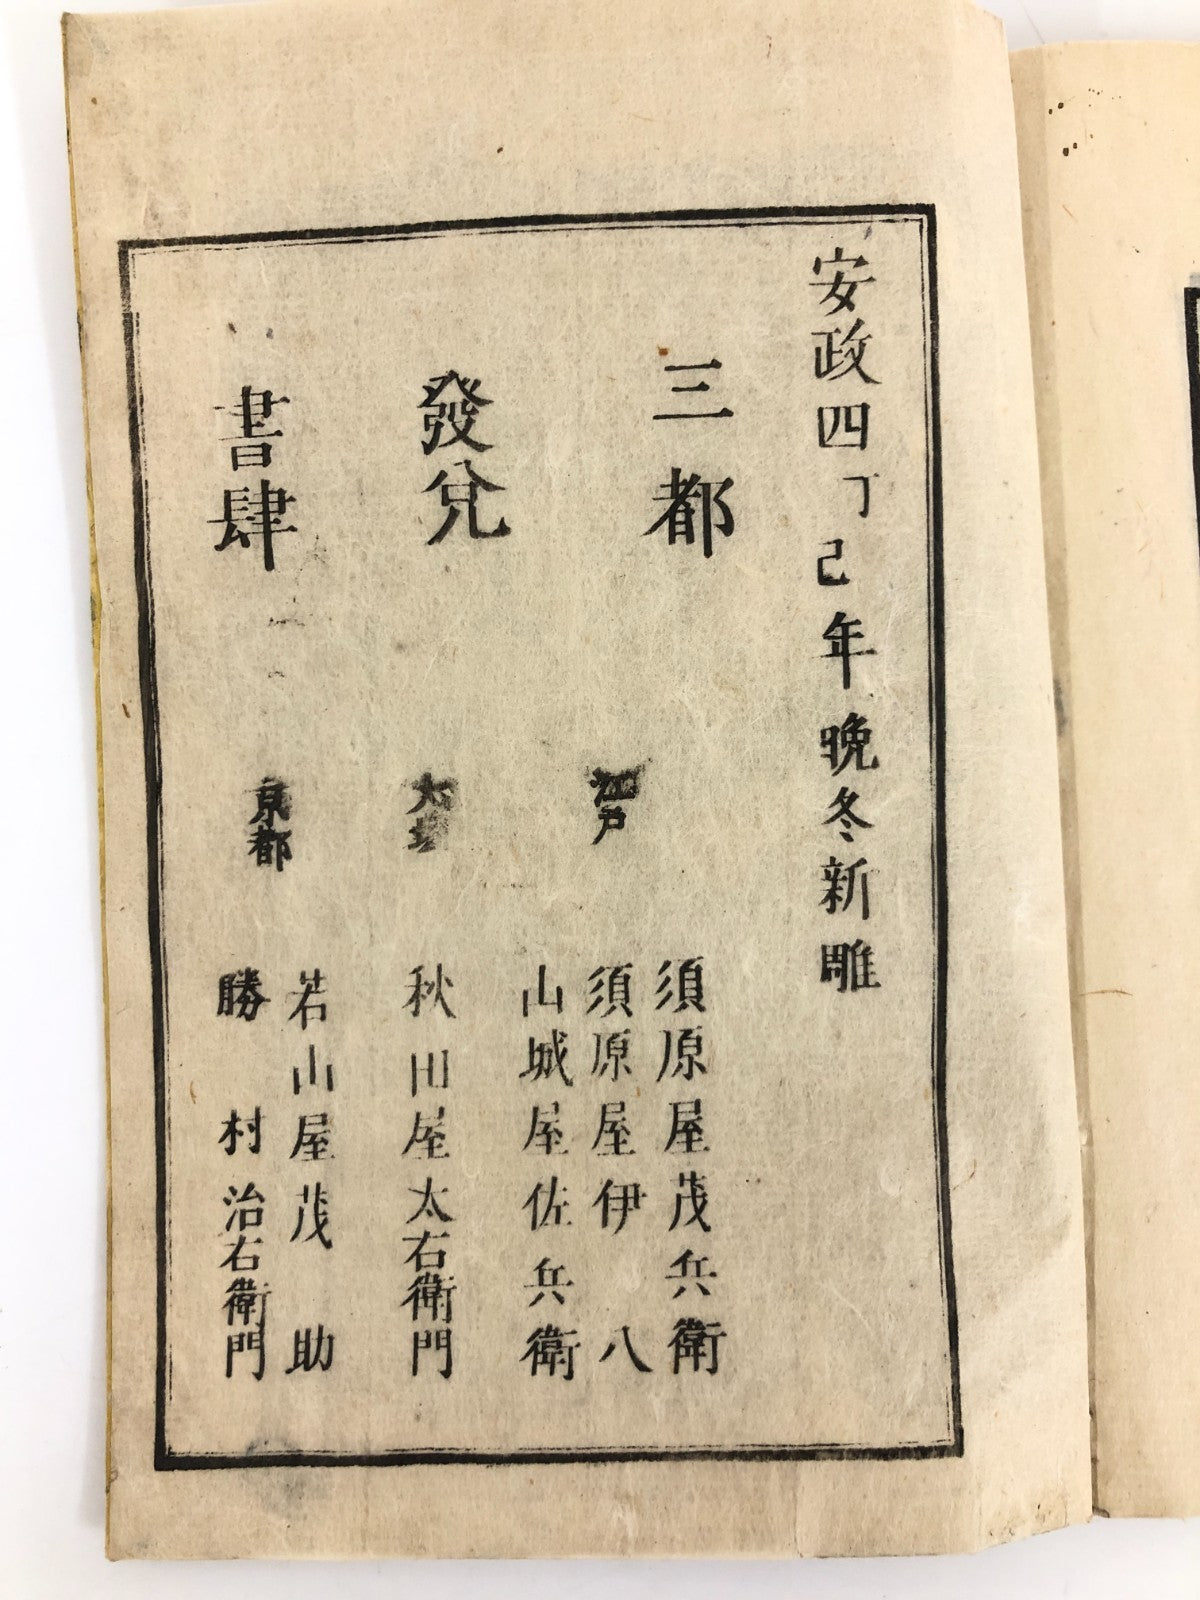 安政四丁巳年晩冬新雕
三都
發兌
書肆
江戸
須原屋茂兵衛
須原屋伊八
山城屋佐兵衛
大坂
秋田屋太右衛門
京都
若山屋茂助
勝村治右衛門